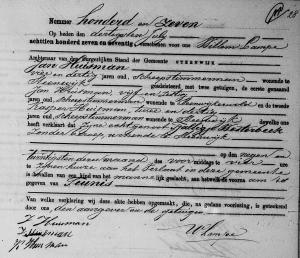 Nommer honderd en zeven
Op heden den dertigsten July
achttien honderd zeven en zeventig, verscheen voor ons Willem Campe
Ambtenaar van den Burgerlijken Stand der Gemeente STEENWIJK
Jan Huisman
vier en dertig jaren oud, scheepstimmerman wonende te
Steenwijk geadsisteerd met twee getuigen, de eerste genaamd
Jan Huisman vijf en zestig
jaren oud, Scheepstimmerman wonende te Steenwijkerwold en de tweede
Huisman
jaren oud, scheepstimmerman wonende te Steenwijk
dewelke ons heeft verklaard dat
zonder beroep, wonende te Steenwijk
op den negen en
twintigsten dezer maand des voormiddags te vier ure
te zijnen huize aan het in deze gemeente
is bevallen van een kind van het mannelijk geslacht, aan hetwelk de voornaam zal
gegeven van Teunis
Van welke verklaring wij deze akte hebben opgemaakt, die, na gedane voorlezing, is geteekend
door ons, den aangever en de getuigen.
J. Huisman
J. Huisman
Huisman
W Campe